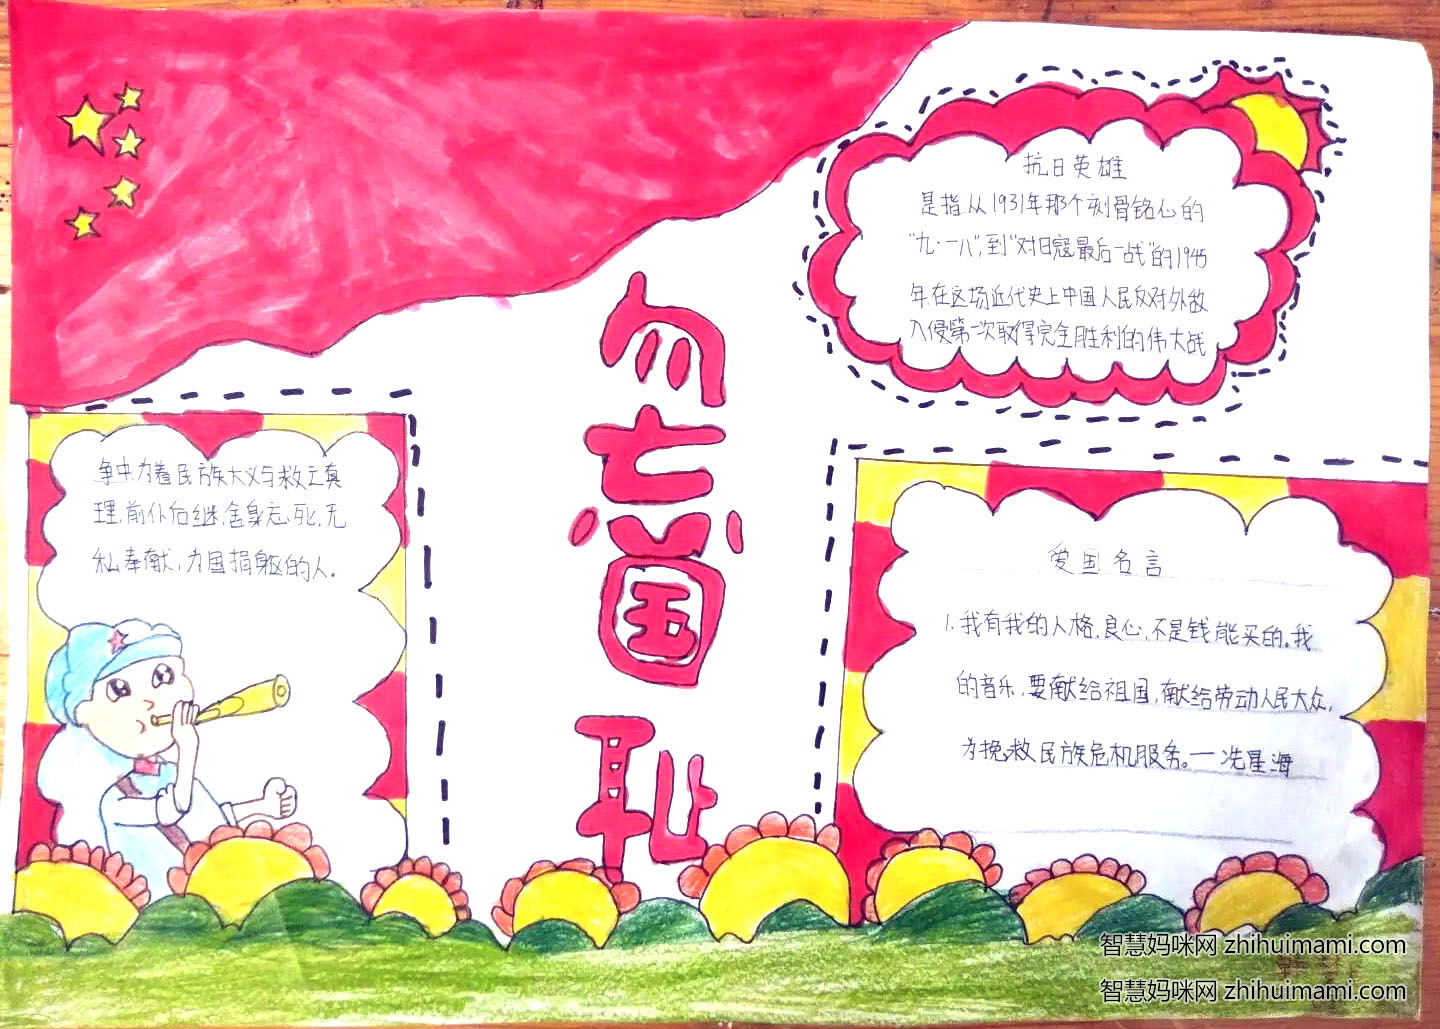 勿忘国耻
抗日英雄
是指从1931年那个刻骨铭心的
"九·一八",到"对日寇最后一战"的1945
年.在这场近代史上中国人民反对外敌
入侵第一次取得完全胜利的伟大战
争中.为着民族大义与救亡真
理.前仆后继.舍身忘死,无
私奉献,为国捐躯的人.
爱国名言
1.我有我的人格.良心,不是钱能买的。我
的音乐,要献给祖国,献给劳动人民大众,
为挽救民族危机服务。一冼星海
智慧妈咪网 zhihuimami.com
智慧妈咪网 zhihuimami.com